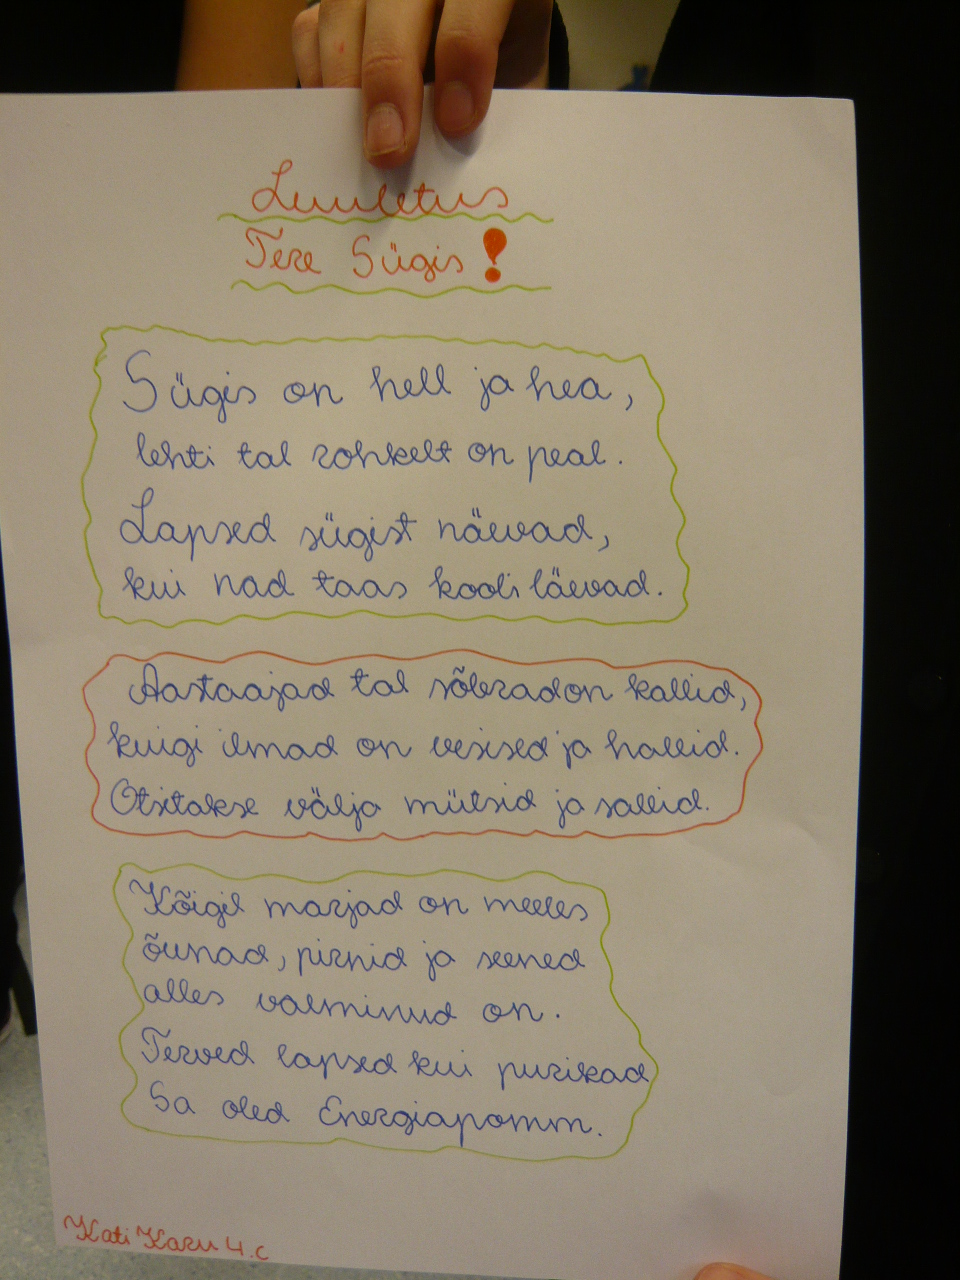 Luuletus
Tere Sügis!
Sügis on hell ja hea,
lehti tal rohkelt on peal.
Lapsed sügist näevad,
kui nad taas kooli läevad.
Aastaajad tal sõbrad on kallid,
kuigi ilmad on vesised ja hallid.
Otsitakse välja mütsid ja sallid.
Kõigil marjad on meeles
õunad, pirnid ja seened
alles valminud on.
Terved lapsed kui purikad
Sa oled Energiapomm.
Kati Karu 4.c